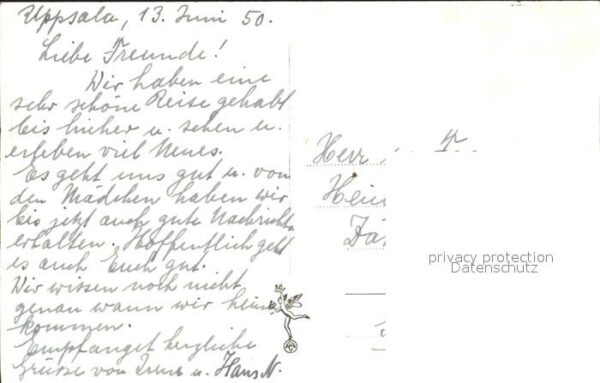 Uppsala, 13. Juni 50.
Liebe Freunde!
Wir haben eine
sehr schöne Reise gehabt
bis hieher u. sehen u.
erleben viel Neues.
Es geht uns gut u. von
den Mädchen haben wir
bis jetzt auch gute Nachrichten
erhalten. Hoffentlich geht
es auch Euch gut.
Wir wissen noch nicht
genau wann wir heim
kommen.
Empfanget herzliche
Grüsse von Irene u. Hans N.
Herr
privacy protection
Datenschutz